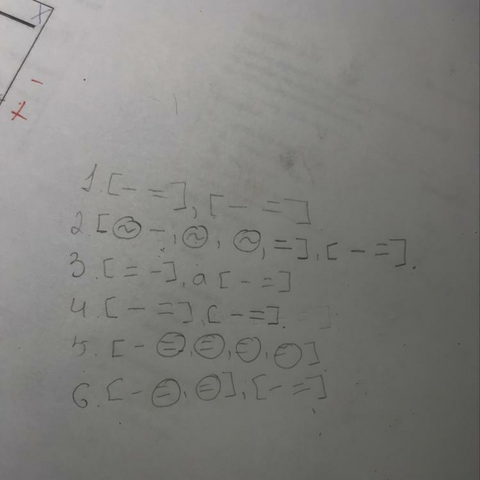 x
-
x
1. [- =], [- =]
2. [⊖ -, ⊖, ⊖, =], [- =].
3. [= -], а [- =]
4. [- =], [- =].
5. [- ⊜, ⊜, ⊖, ⊖]
6. [- ⊖, ⊜], [- =]